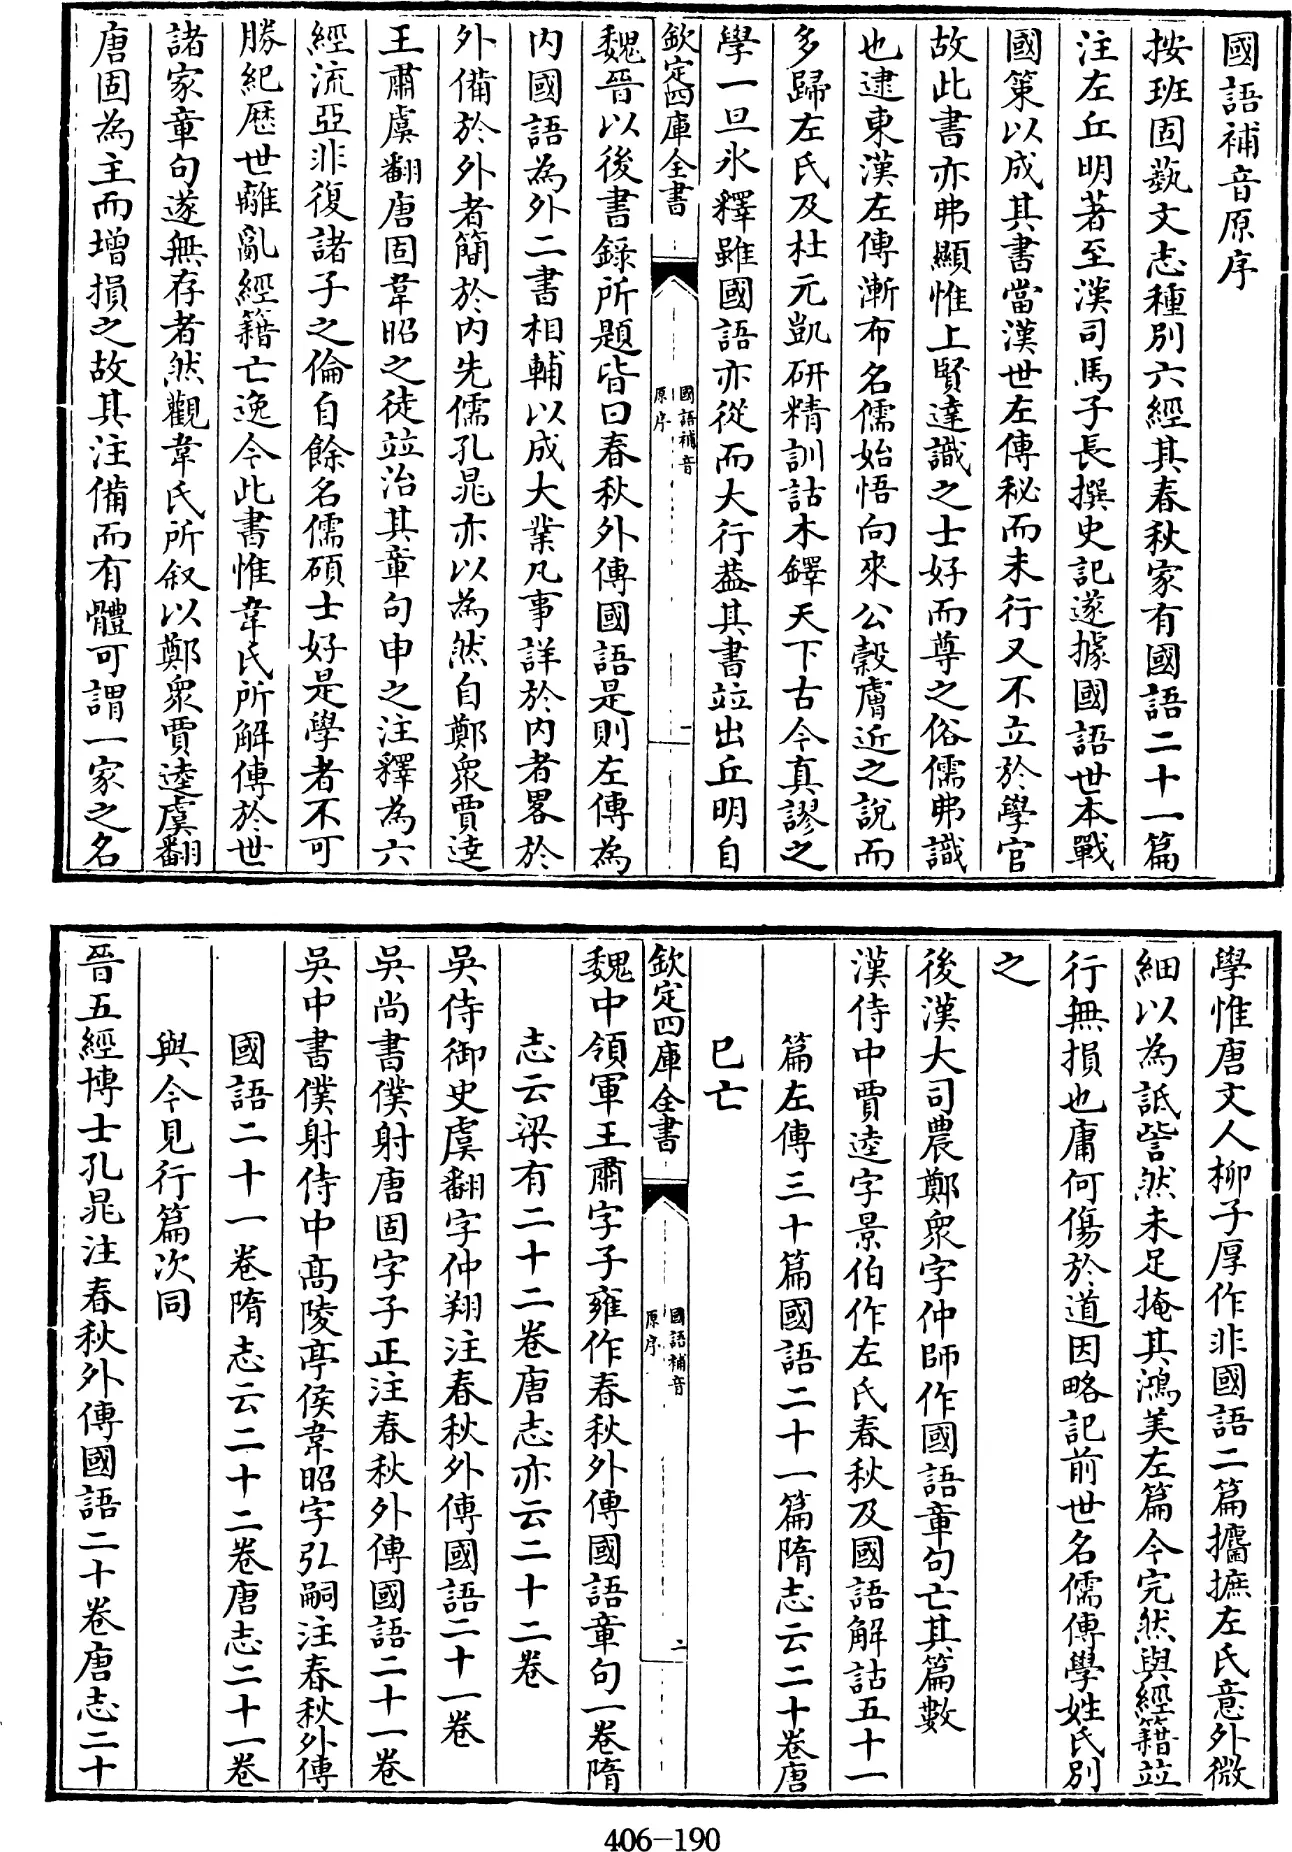 國語補音原序
按班固藝文志種別六經其春秋家有國語二十一篇
注左丘明著至漢司馬子長撰史記遂據國語世本戰
國策以成其書當漢世左傳秘而未行又不立於學官
故此書亦弗顯惟上賢達識之士好而尊之俗儒弗識
也逮東漢左傳漸布名儒始悟向來公穀膚近之說而
多歸左氏及杜元凱研精訓詁木鐸天下古今真謬之
學一旦氷釋雖國語亦從而大行葢其書竝出丘明自
欽定四庫全書
國語補音
原序
一
魏晉以後書錄所題皆曰春秋外傳國語是則左傳為
内國語為外二書相輔以成大業凡事詳於内者畧於
外備於外者簡於内先儒孔晁亦以為然自鄭衆賈逵
王肅虞翻唐固韋昭之徒竝治其章句申之注釋為六
經流亞非復諸子之倫自餘名儒碩士好是學者不可
勝紀歴世離亂經籍亡逸今此書惟韋氏所解傳於世
諸家章句遂無存者然觀韋氏所叙以鄭衆賈逵虞翻
唐固為主而增損之故其注備而有體可謂一家之名
學惟唐文人柳子厚作非國語二篇攟摭左氏意外微
細以為詆訾然未足掩其鴻美左篇今完然與經籍竝
行無損也庸何傷於道因略記前世名儒傳學姓氏别
之
後漢大司農鄭衆字仲師作國語章句亡其篇數
漢侍中賈逵字景伯作左氏春秋及國語解詁五十一
篇左傳三十篇國語二十一篇隋志云二十卷唐
已亡
欽定四庫全書
國語補音
原序
二
魏中領軍王肅字子雍作春秋外傳國語章句一卷隋
志云梁有二十二卷唐志亦云二十二卷
吳侍御史虞翻字仲翔注春秋外傳國語二十一卷
吳尚書僕射唐固字子正注春秋外傳國語二十一卷
吳中書僕射侍中高陵亭侯韋昭字弘嗣注春秋外傳
國語二十一卷隋志云二十二卷唐志二十一卷
與今見行篇次同
晉五經博士孔晁注春秋外傳國語二十卷唐志二十
406-190